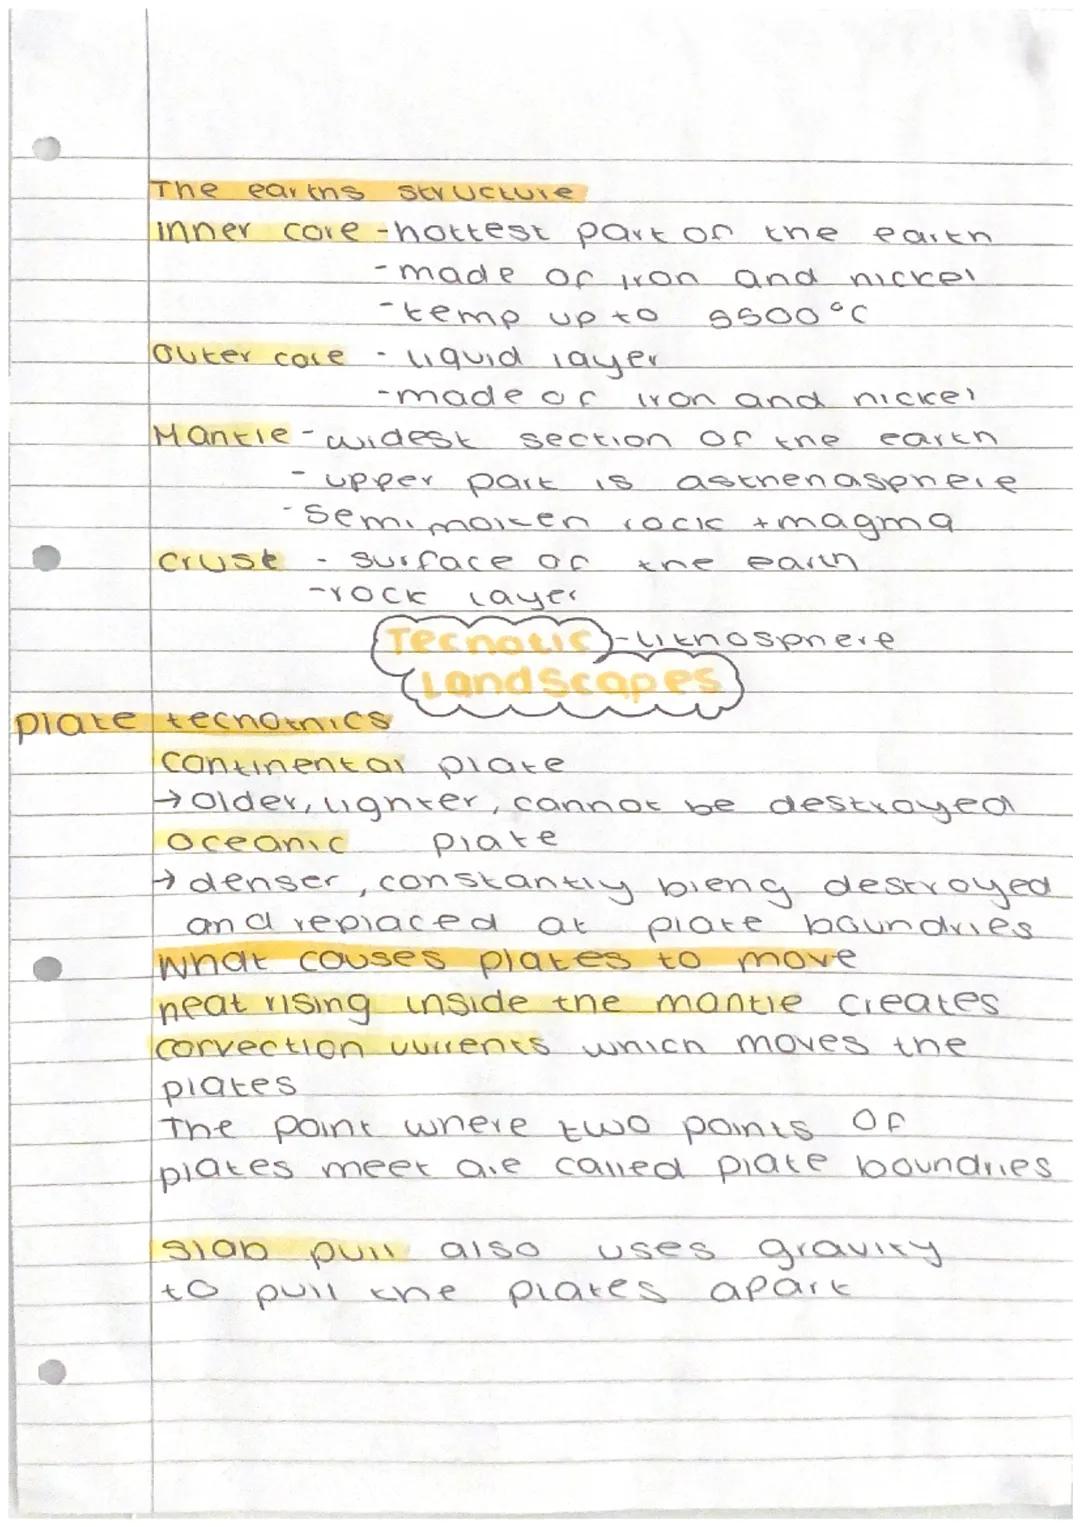 The earths structure
inner core - hottest part of the earth
- made of iron and nickel
- temp up to 5500°C
Outer core - liquid layer
- made of iron and nickel
Mantle - widest section of the earth
- upper part is asthenasphere
- Semi molten rock + magma
Crust - surface of the earth
- rock layer
Tecnotic - lithosphere
Landscapes
plate tecnotnics
Continental plate
→ older, lighter, cannot be destroyed
Oceanic plate
→ denser, constantly bieng destroyed
and replaced at plate boundries
What causes plates to move
heat rising inside the mantle creates
convection currents which moves the
plates
The point where two points of
plates meet are called plate boundries
Slab pull also uses gravity
to pull the plates apart